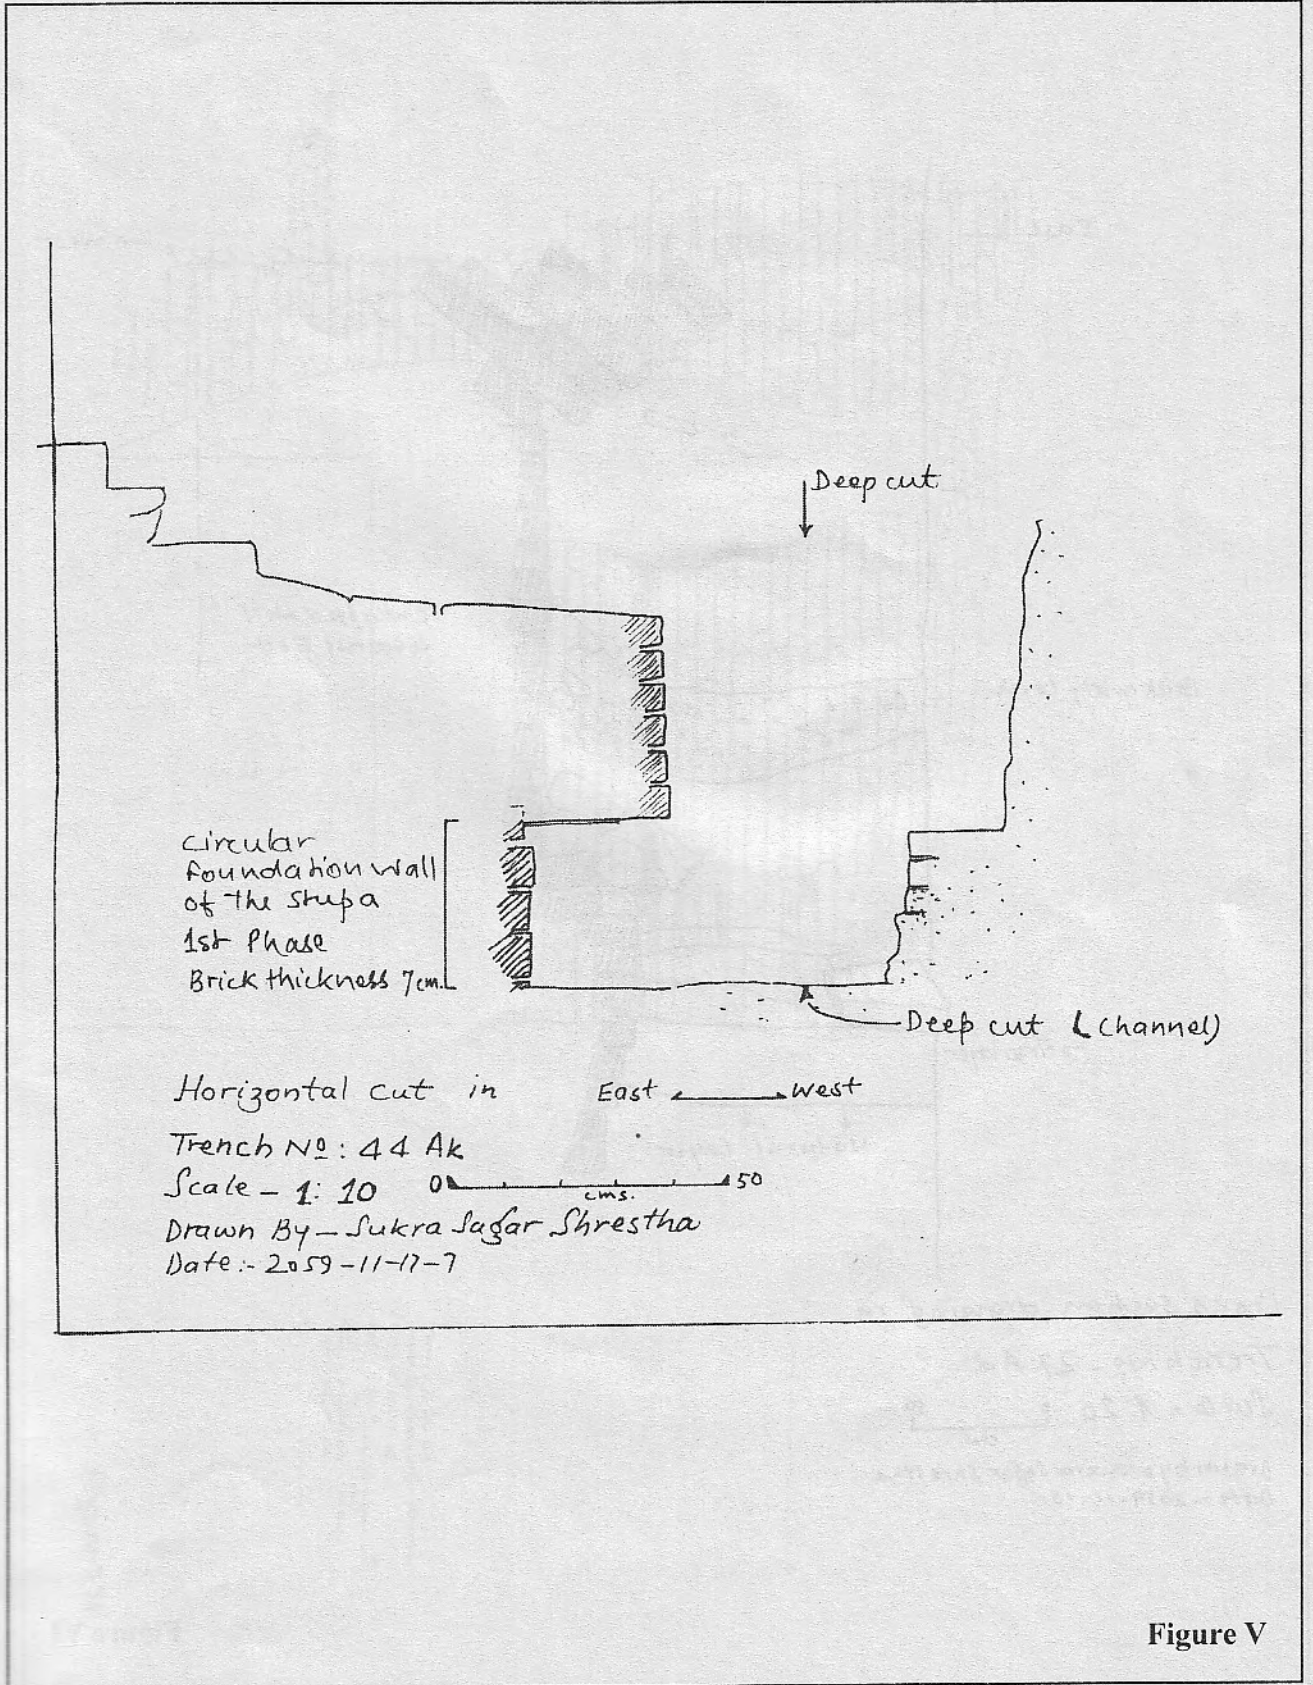 Deep cut
circular
foundation wall
of the stupa
1st Phase
Brick thickness 7cm.
Deep cut (Channel)
Horizontal cut in East West
Trench Nº: 44 Ak
Scale – 1: 10 0 50
cms.
Drawn By – Sukra Sagar Shrestha
Date:- 2059-11-17-7
Figure V